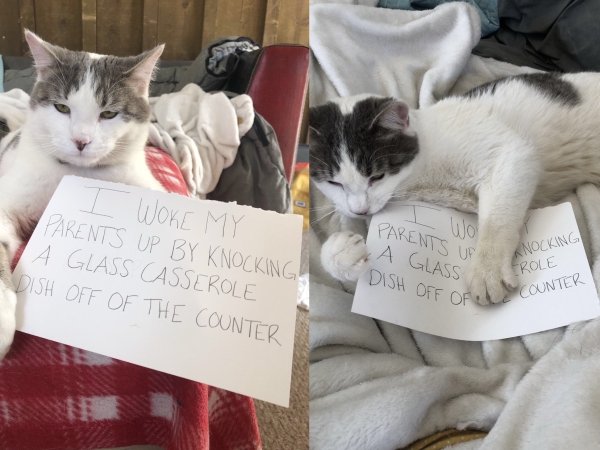 I WOKE MY
PARENTS UP BY KNOCKING
A GLASS CASSEROLE
DISH OFF OF THE COUNTER
I WO
PARENTS UP KNOCKING
A GLASS ROLE
DISH OFF OF COUNTER